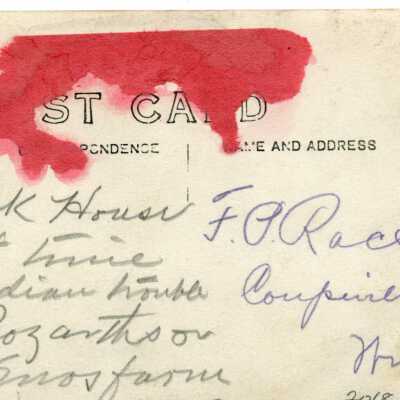 ST CARD
PONDENCE
NAME AND ADDRESS
K House
time
dian trouble
Bozarthsor
Enosfarm
F. P. Race
Coupevil
Wn
2018